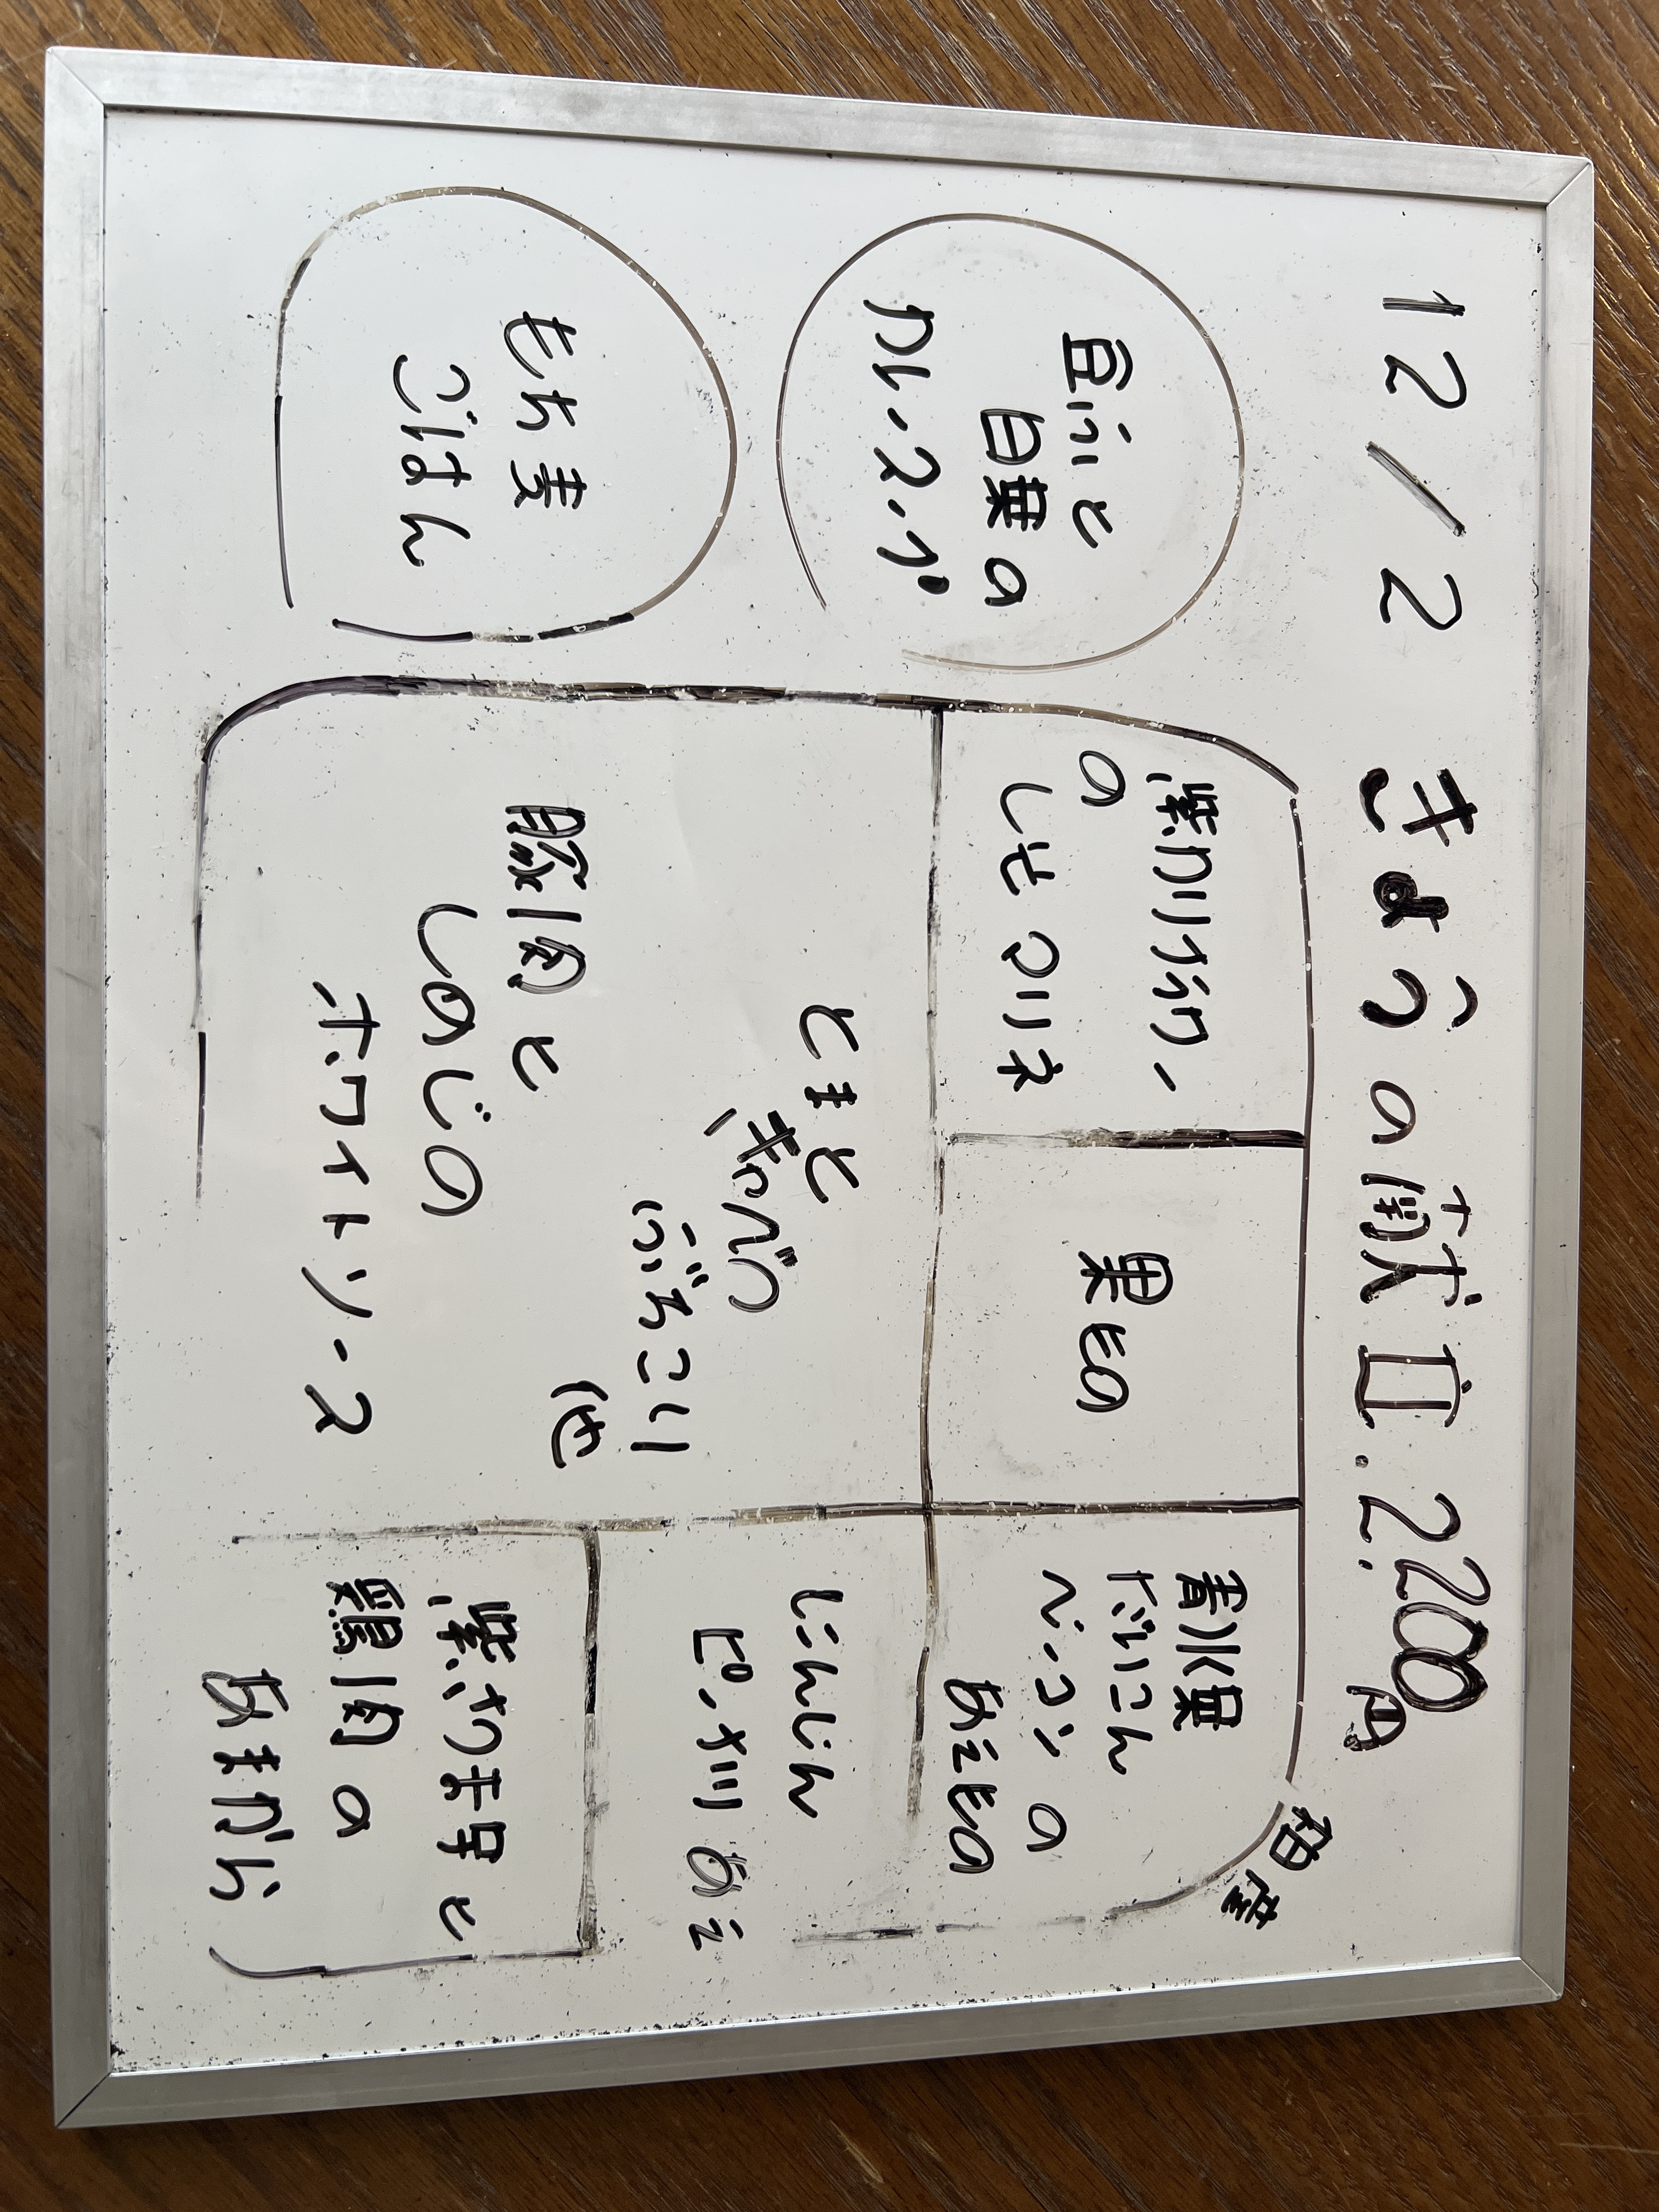 12/2 きょうの献立. 2.200円
柏産
豆ふと
白菜の
カレースープ
もち麦
ごはん
紫カリフラワー
の レモマリネ
果もの
青水菜
だいこん
ベーコンの
あえもの
とまと
キャベツ
ぶろっこりー
他
豚肉と
しめじの
ホワイトソース
にんじん
ピーナツあえ
紫さつま芋と
鶏肉の
あまから